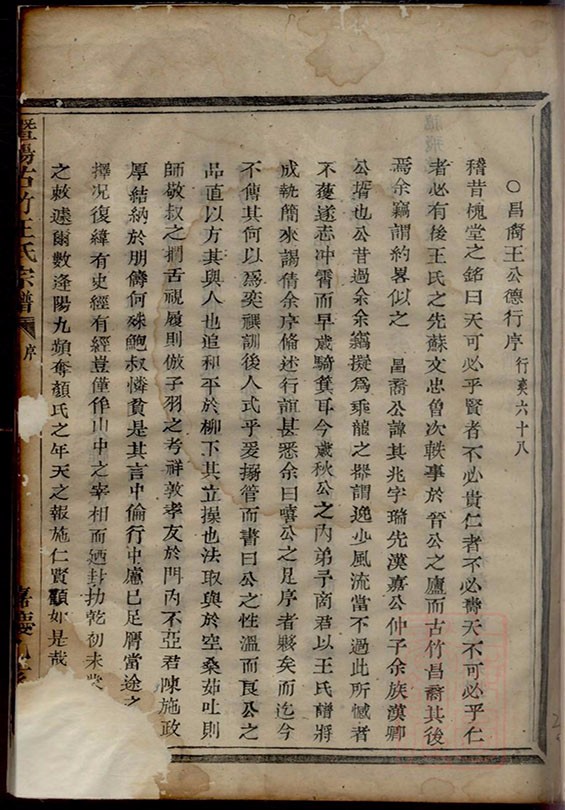 ○昌裔王公德行序 行奕六十八
稽昔槐堂之銘曰天可必乎賢者不必貴仁者不必壽天不可必乎仁
者必有後王氏之先蘇文忠曾次軼事於晉公之廬而古竹昌裔其後
焉余竊謂約畧似之 昌裔公諱其兆字瑞先漢嘉公仲子余族漢卿
公壻也公昔過余余竊擬爲乘龍之譽謂逸少風流當不過此所憾者
不獲遂志冲霄而早歲騎箕耳今歲秋公之內弟予商君以王氏譜將
成軌簡來謁倩余序脩述行誼甚悉余曰嘻公之足序者夥矣而迄今
不傳其何以爲奕禩訓後人式乎爰搦管而書曰公之性溫而良公之
品直以方其與人也追和平於柳下其立操也法取與於空桑茹吐則
師敬叔之捫舌視履則倣子羽之考祥敦孝友於門內不亞君陳施政
厚結納於朋儕何殊鮑叔憐貧是其言中倫行中慮已足膺當途之
擇况復緯有史經有經豈僅作山中之宰相而廼封抝乾初未
之敕遽爾數逢陽九頻奪顏氏之年天之報施仁賢顧如是哉
暨陽古竹王氏宗譜 序 嘉慶